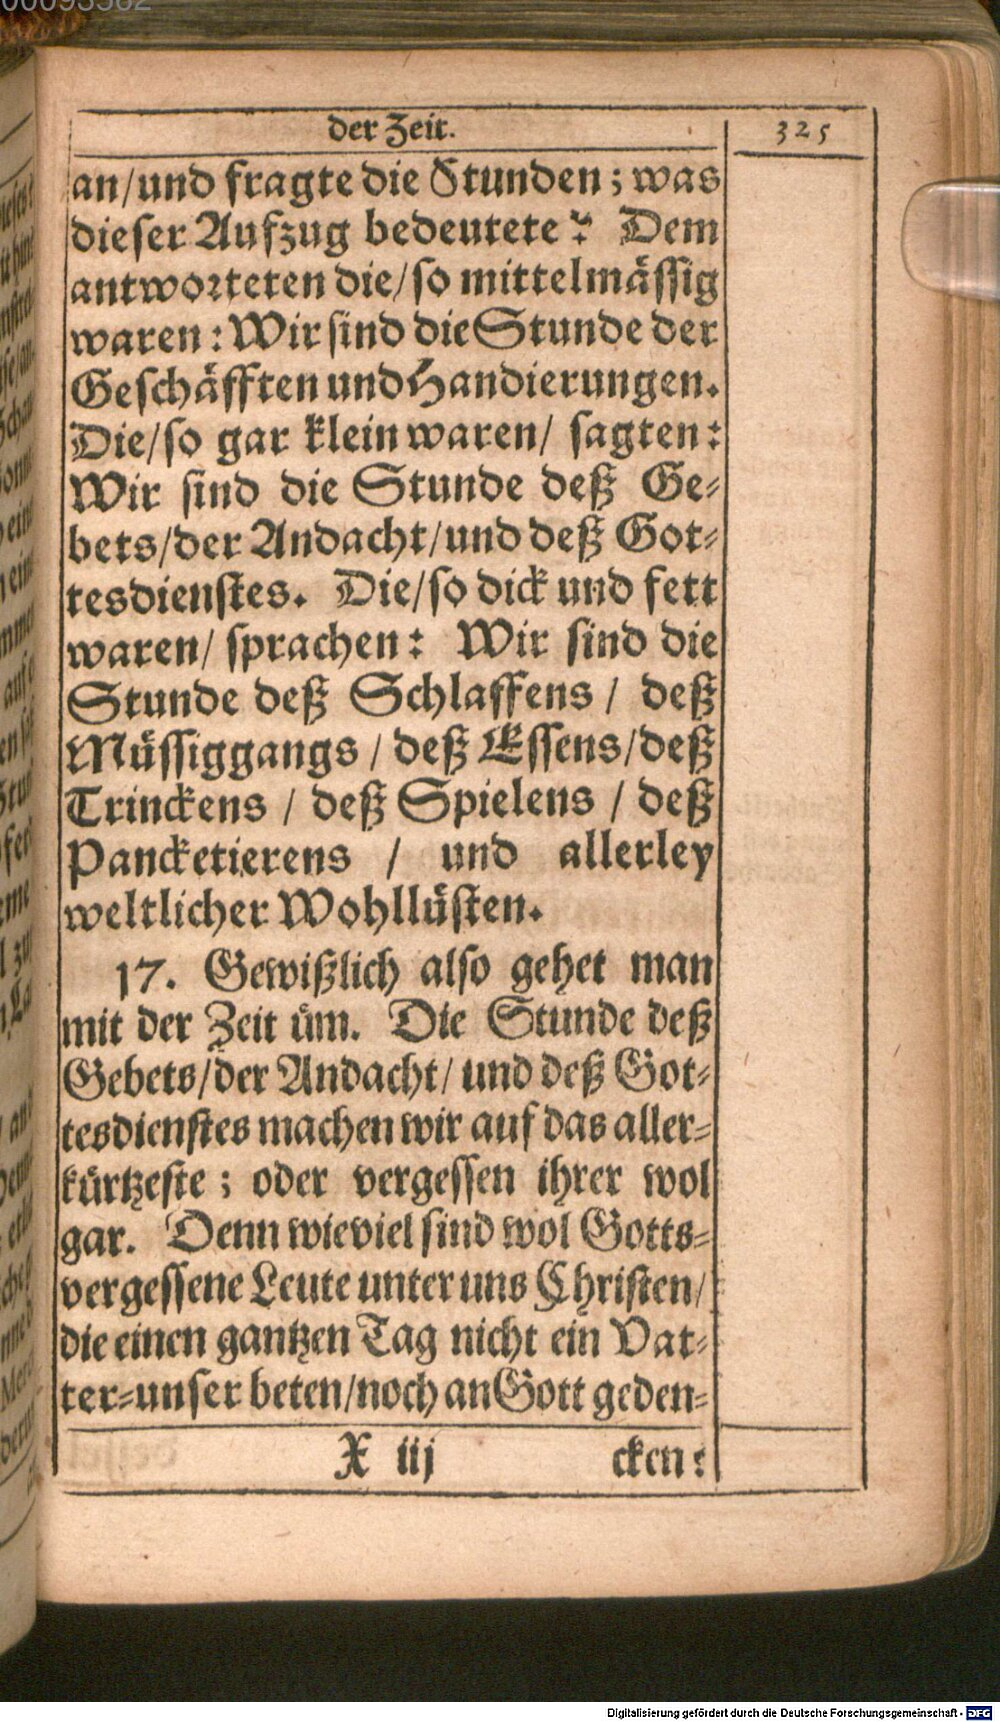 00093562
der Zeit.
325
an/und fragte die Stunden; was
dieser Aufzug bedeutete? Dem
antworteten die/so mittelmässig
waren: Wir sind die Stunde der
Geschäfften und Handierungen.
Die/so gar klein waren/ sagten:
Wir sind die Stunde deß Ge-
bets/der Andacht/und deß Got-
tesdienstes. Die/so dick und fett
waren/ sprachen: Wir sind die
Stunde deß Schlaffens / deß
Müssiggangs / deß Essens/deß
Trinckens / deß Spielens / deß
Panckетierens / und allerley
weltlicher Wohllüsten.
17. Gewißlich also gehet man
mit der Zeit üm. Die Stunde deß
Gebets/der Andacht/ und deß Got-
tesdienstes machen wir auf das aller-
kürtzeste; oder vergessen ihrer wol
gar. Denn wieviel sind wol Gotts-
vergessene Leute unter uns Christen/
die einen gantzen Tag nicht ein Vat-
ter-unser beten/noch an Gott geden-
X iij cken:
Digitalisierung gefördert durch die Deutsche Forschungsgemeinschaft - DFG